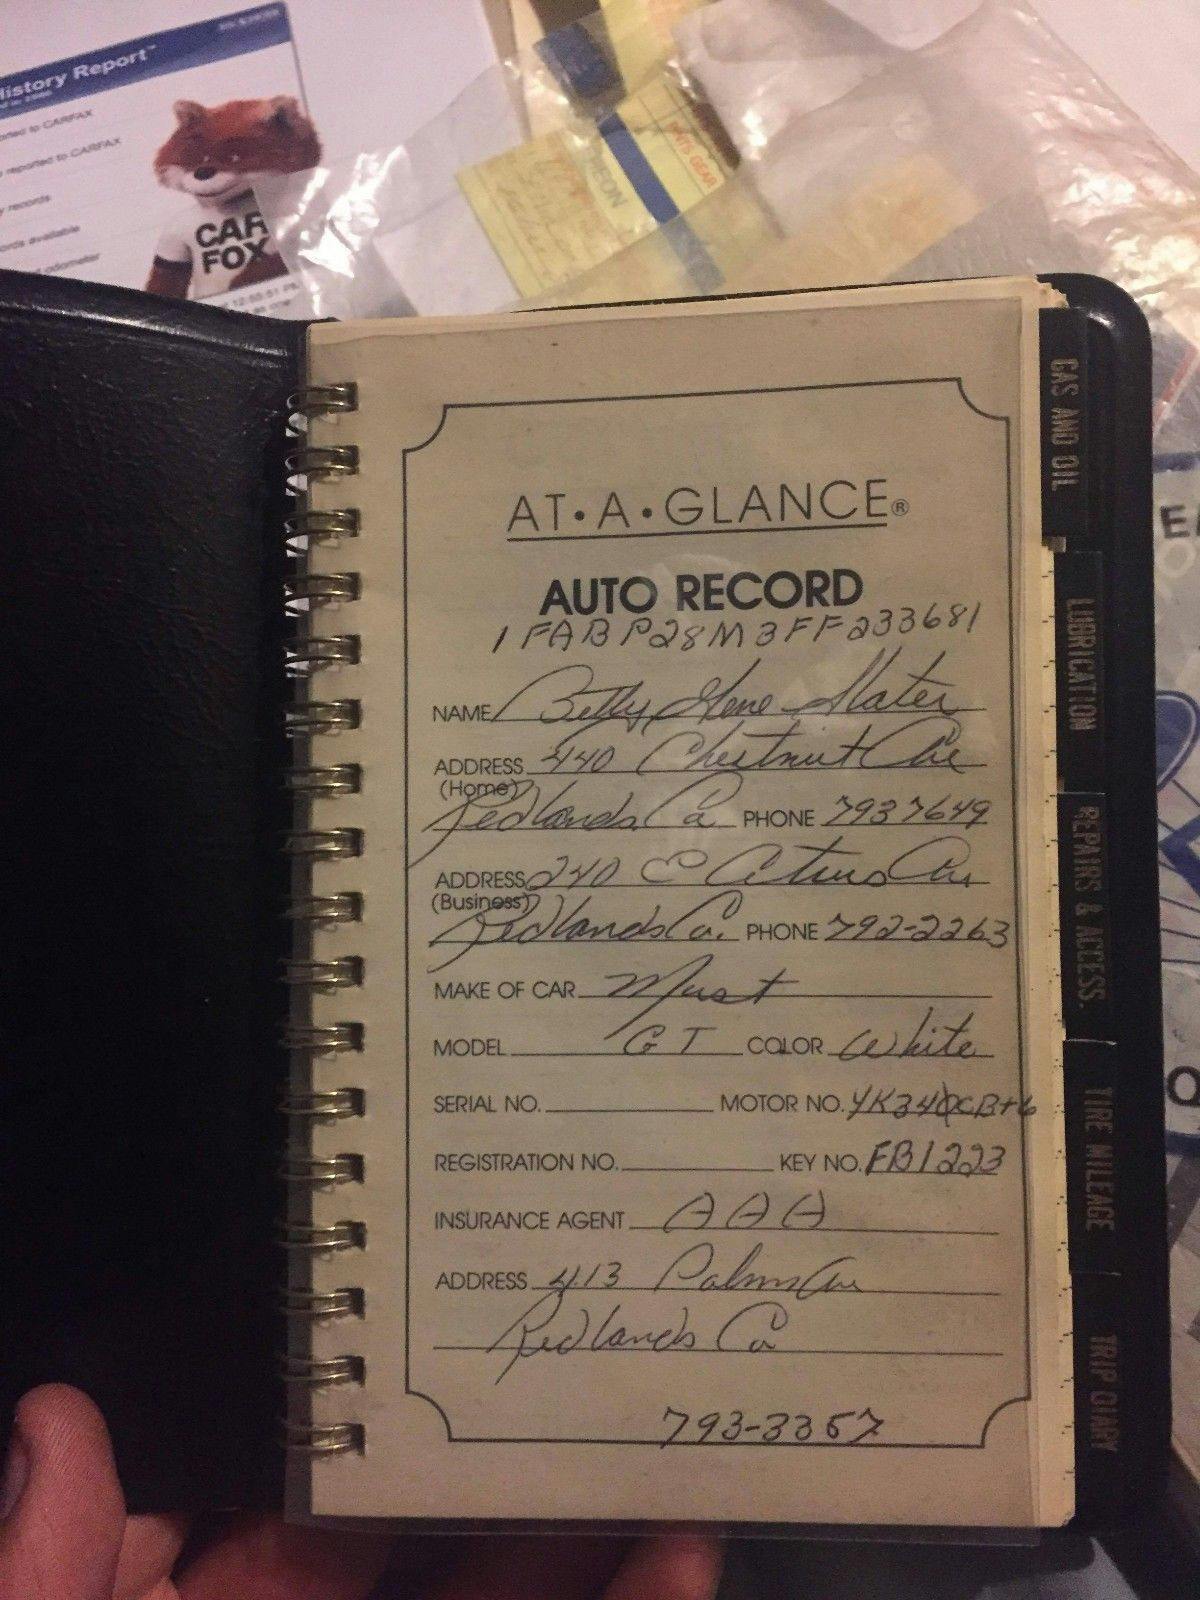 History Report™
reported to CARFAX
records
available
odometer
CAR
FOX
PARTS GEAR
AT•A•GLANCE®
AUTO RECORD
1FABP28M3FF233681
NAME Betty Gene Slater
ADDRESS 440 Chestnut Ave
(Home)
Redlands Ca PHONE 7937649
ADDRESS 240 E Citrus Ave
(Business)
Redlands Ca. PHONE 792-2263
MAKE OF CAR Must
MODEL GT COLOR White
SERIAL NO. MOTOR NO.
REGISTRATION NO. KEY NO. FB1223
INSURANCE AGENT AAA
ADDRESS 413 Palm Ave
Redlands Ca
793-3357
GAS AND OIL
LUBRICATION
REPAIRS & ACCESS.
TIRE MILEAGE
TRIP DIARY